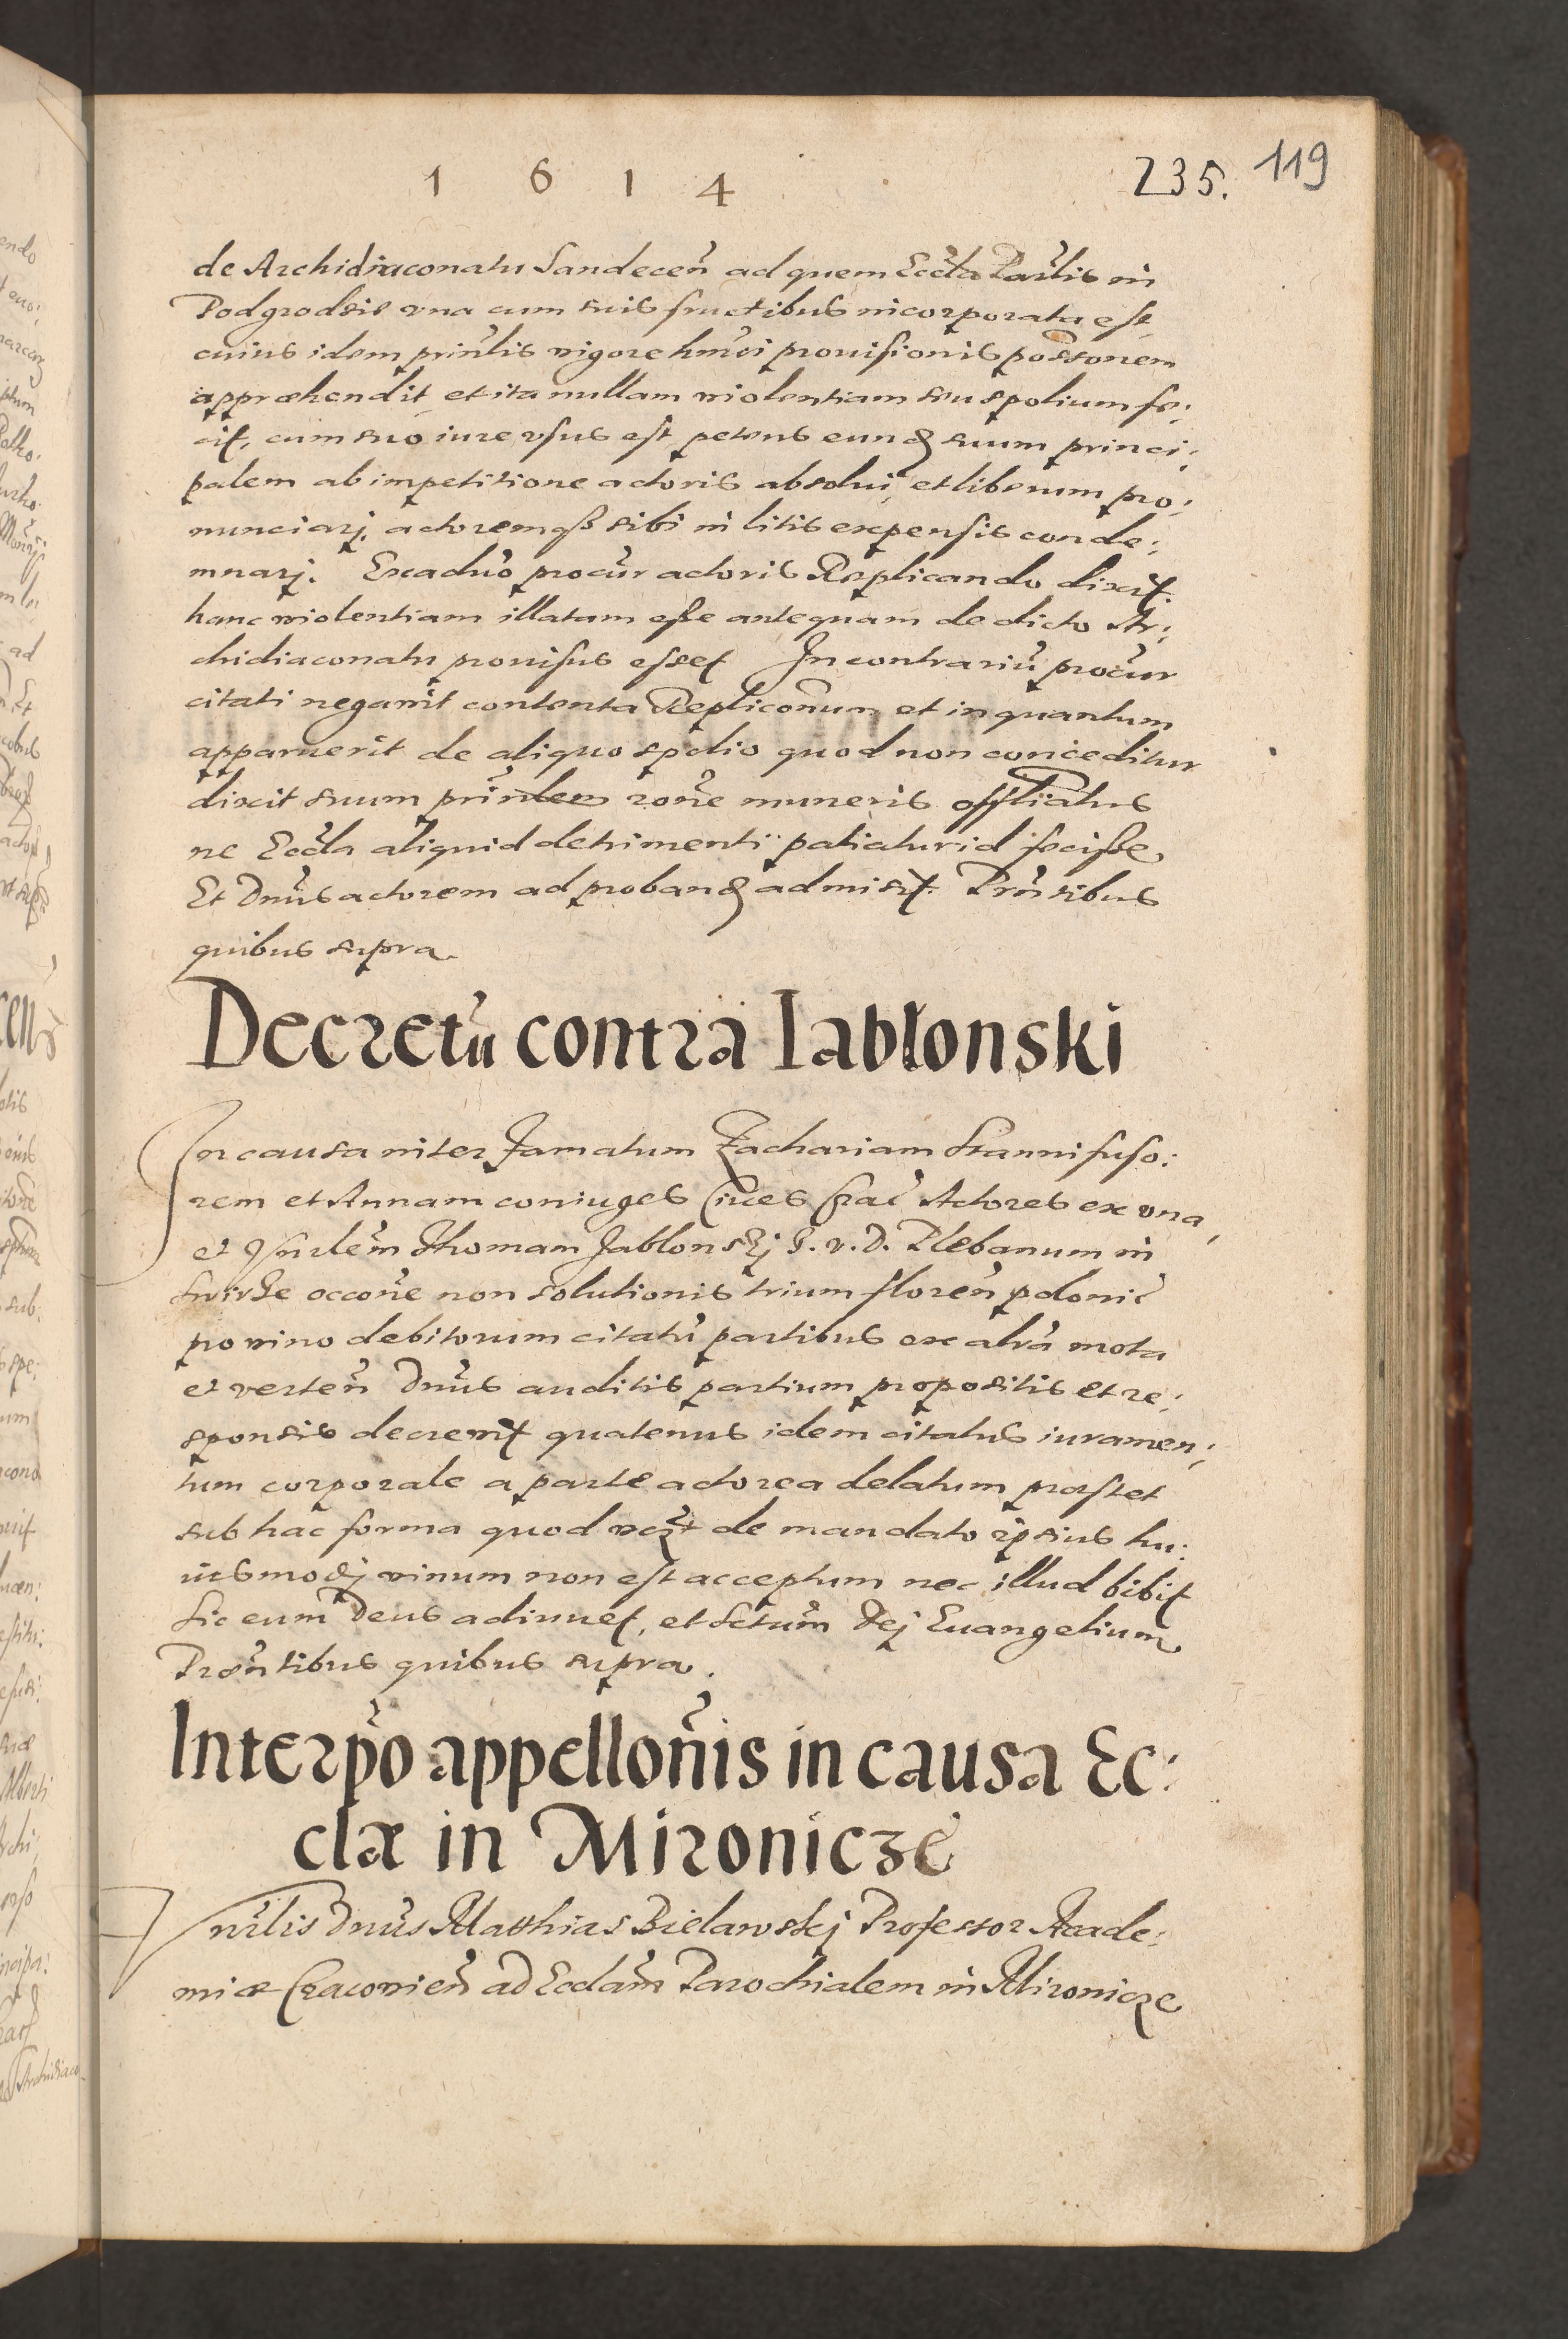 1 6 1 4
235. 119
de Archidiaconatu Sandecen̄ ad quem Eccl̃a Par̃lis in
Podgrodzie vna cum suis fructibus incorporata est
cuius idem prin̄lis vigore hm̄oi prouisionis poss̄onem
appræhendit et ita nullam violentiam seu spolium fe:
cit, cum suo iure vsus est petens eunđ suum princi:
palem ab impetitione actoris absolui et liberum pro:
nunciarj actoremqȝ sibi in litis expensis conde:
mnarj. Ex aduõ procũr actoris Replicando dixit
hanc violentiam illatam esse antequam de dicto Ar:
chidiaconatu prouisus esset In contrariũ procũr
citati negauit contenta Replicon̄um et in quantum
apparuerit de aliquo spolio quod non conceditur
dixit suum prin̄lem rōne muneris offīliatus
ne Eccl̃a aliquid detrimenti patiatur id fecisse
Et Dn̄us actorem ad probanđ admisit. Prn̄tibus
quibus supra
Decretũ contra Iablonski
In causa inter Famatum Zachariam Stannifuso:
rem et Annam coniuges Ciues Crac̃ Actores ex vna
et Vn̄rlem Thomam Jablonskj I. v. D. Plebanum in
occōne non solutionis trium floren̄ polonic̃
pro vino debitorum citatũ partibus ex altrã mota
et verten̄ Dn̄us auditis partium propositis et re:
sponsis decreuit quatenus idem citatus iuramen:
tum corporale a parte actorea delatum præstet
sub hac forma quod de mandato ipsius hu:
iusmodj vinum non est acceptum nec illud bibit
Sic eum Deus adiuuet, et Sctum̄ Dej Euangelium
Præn̄tibus quibus supra.
Interp̃o appellon̄is in causa Ec:
clæ in Mironicze
Vn̄rlis Dn̄us Matthias Bielawskj Professor Acade:
miæ Cracouien̄ ad Ecclãm Parochialem in Mironicze